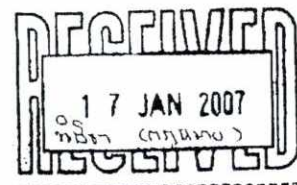 RECEIVED
17 JAN 2007
(กฎหมาย)
RECEIVED